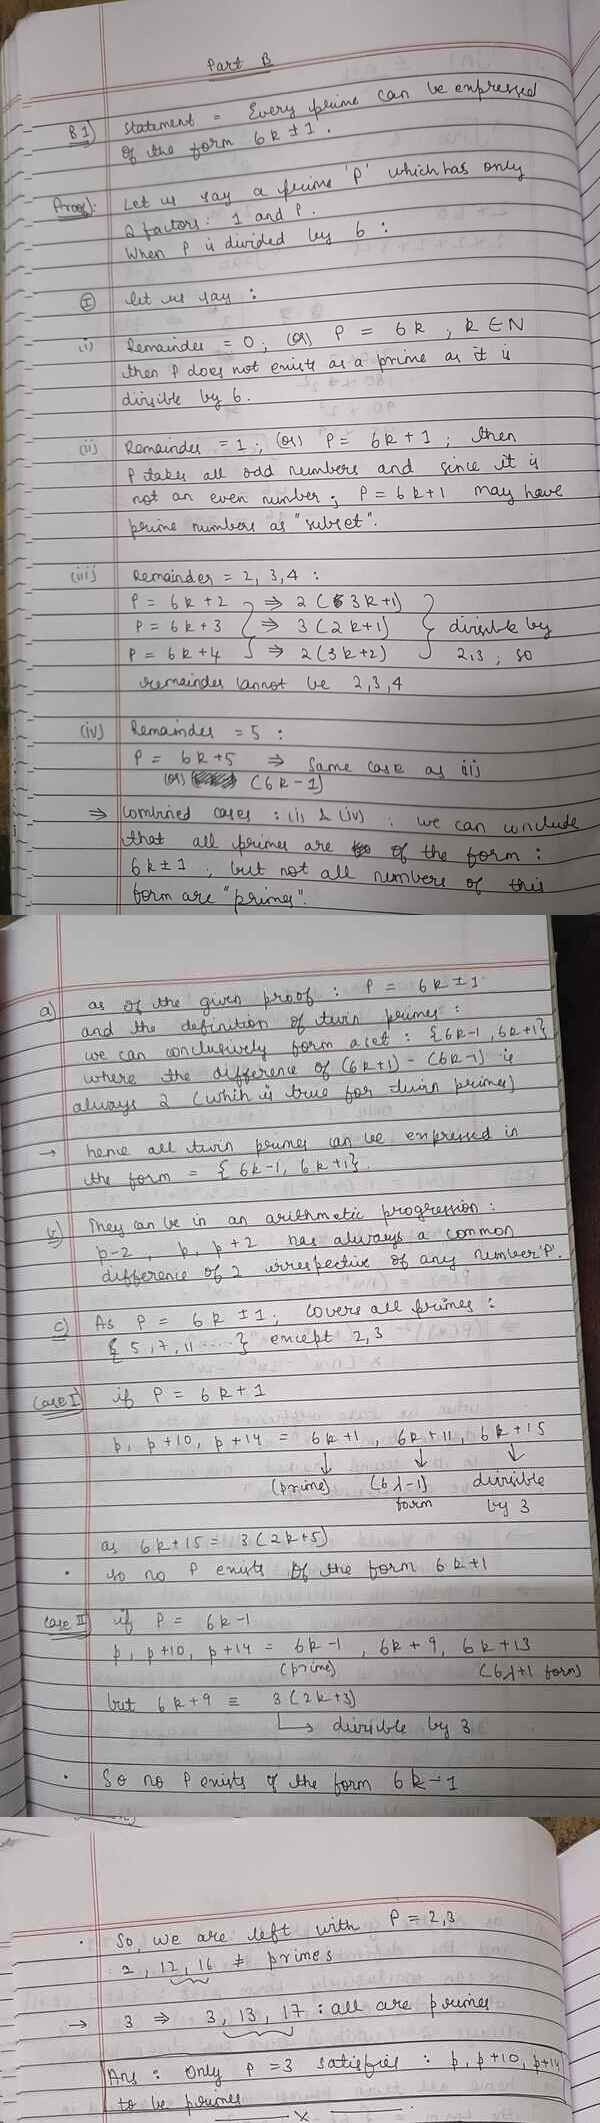 Part B
B1) Statement = Every prime can be expressed
of the form 6k ± 1.
Proof: Let us say a prime 'P' which has only
2 factors: 1 and P.
When P is divided by 6 :
I let us say :
(i) Remainder = 0; (or) P = 6k , k ∈ N
then P does not exists as a prime as it is
divsible by 6.
(ii) Remainder = 1 ; (or) P = 6k + 1 ; then
P takes all odd numbers and since it is
not an even number; P = 6k+1 may have
prime numbers as "subset".
(iii) Remainder = 2, 3, 4 :
P = 6k + 2 ⇒ 2 (3k+1)
P = 6k + 3 ⇒ 3 (2k+1) divisible by
P = 6k + 4 ⇒ 2 (3k+2) 2,3 ; so
remainder cannot be 2,3,4
(iv) Remainder = 5 :
P = 6k + 5 ⇒ Same case as (ii)
(or) (6k - 1)
⇒ Combined cases : (ii) & (iv) : we can conclude
that all primes are of the form :
6k ± 1 ; but not all numbers of this
form are "primes".
a) as of the given proof : P = 6k ± 1
and the definition of twin primes :
we can conclusively form a set : {6k-1, 6k+1}
where the difference of (6k+1) - (6k-1) is
always 2 (whih is true for twin primes)
→ hene all twin primes can be expressed in
the form = {6k-1, 6k+1}.
They can be in an arithmetic progression :
p-2 , p, p+2 has always a common
difference of 2 irrespective of any number 'P'.
c) As P = 6k ± 1 ; covers all primes :
{ 5, 7, 11 ..... } except 2,3
Case I if P = 6k + 1
p, p+10, p+14 = 6k+1 , 6k+11 , 6k+15
↓ ↓ ↓
(prime) (6λ-1) divisible
form by 3
as 6k+15 = 3(2k+5)
• so no P exists of the form 6k+1
Case II if P = 6k-1
p, p+10, p+14 = 6k-1 , 6k+9, 6k+13
(prime) (6λ+1 form)
but 6k+9 = 3(2k+3)
↳ divisible by 3
• So no P exists of the form 6k-1
• So, we are left with P = 2,3
2 , 12 , 16 ≠ primes
→ 3 ⇒ 3, 13, 17 : all are primes
Ans : Only P = 3 satisfies : p, p+10, p+14
to be primes
x